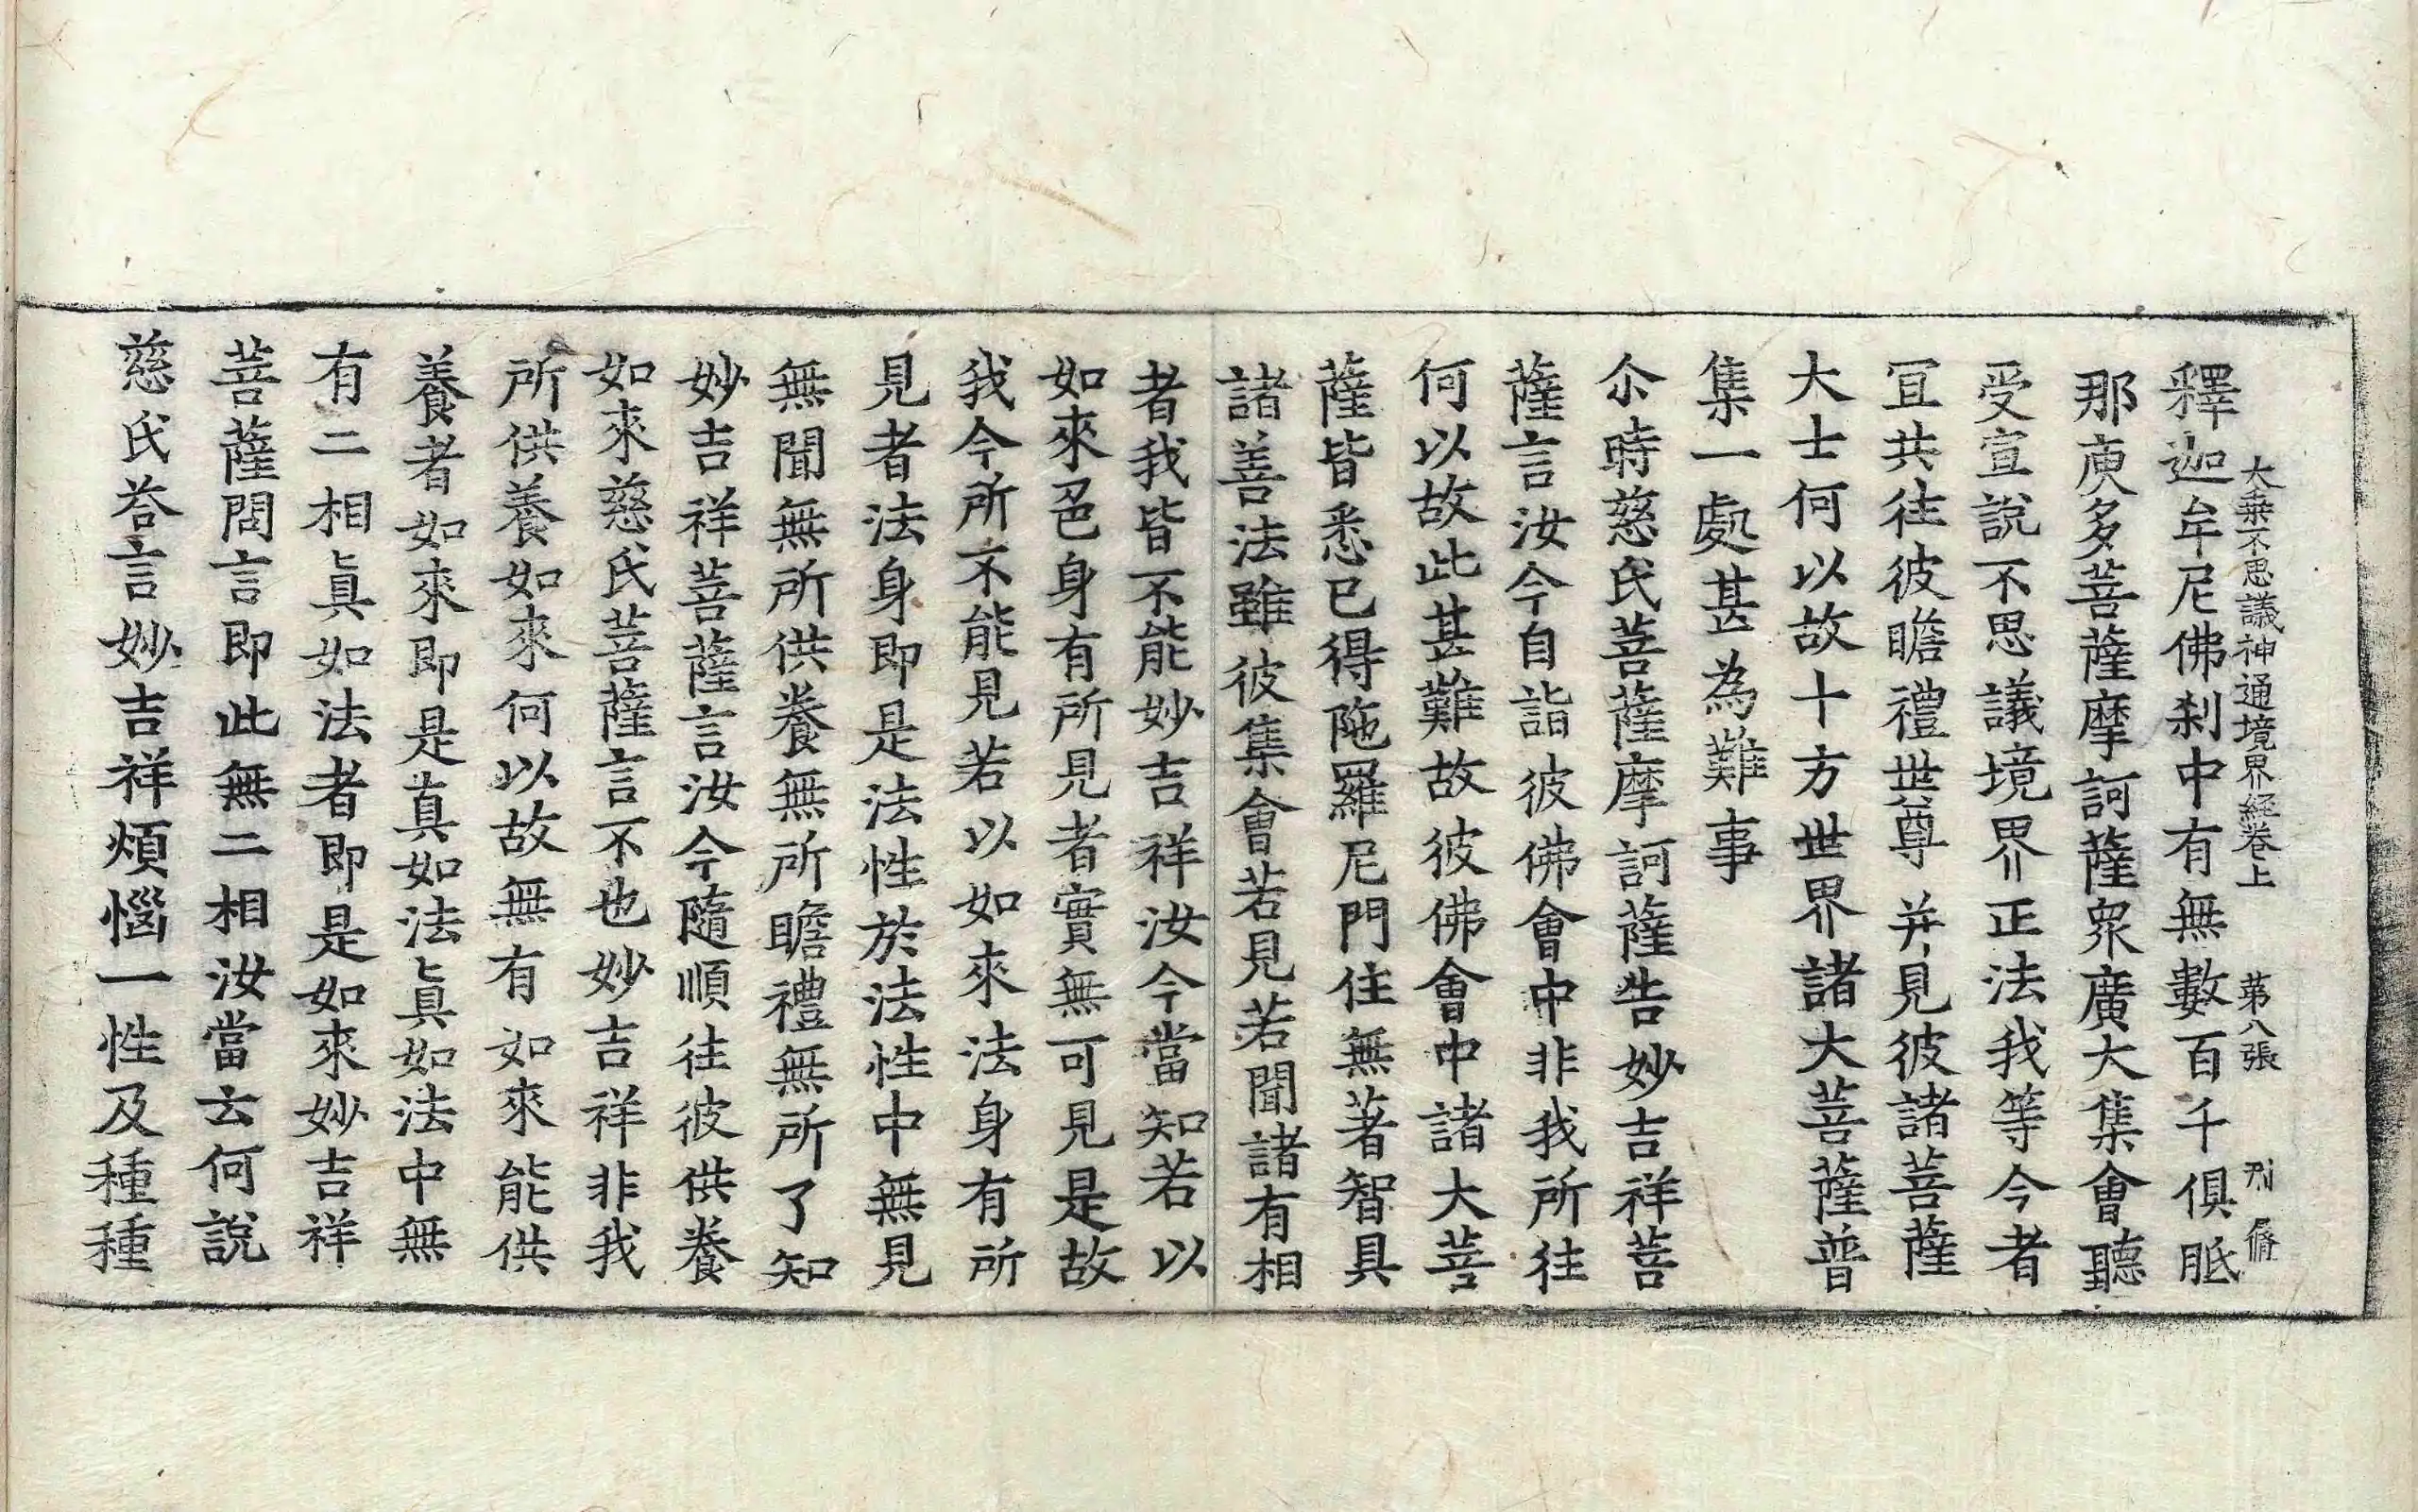 大乗不思議神通境界經卷上　第八張　刑　脩
釋迦牟尼佛剎中有無數百千俱胝
那庾多菩薩摩訶薩衆廣大集會聽
受宣說不思議境界正法我等今者
冝共徃彼瞻禮世尊并見彼諸菩薩
大士何以故十方世界諸大菩薩普
集一處甚為難事
尒時慈氏菩薩摩訶薩告妙吉祥菩
薩言汝今自詣彼佛會中非我所徃
何以故此甚難故彼佛會中諸大菩
薩皆悉已得陁羅尼門住無著智具
諸善法雖彼集會若見若聞諸有相
者我皆不能妙吉祥汝今當知若以
如來色身有所見者實無可見是故
我今所不能見若以如來法身有所
見者法身即是法性於法性中無見
無聞無所供養無所瞻禮無所了知
妙吉祥菩薩言汝今隨順徃彼供養
如來慈氏菩薩言不也妙吉祥非我
所供養如來何以故無有如來能供
養者如來即是真如法眞如法中無
有二相眞如法者即是如來妙吉祥
菩薩問言即此無二相汝當云何說
慈氏荅言妙吉祥煩惱一性及種種